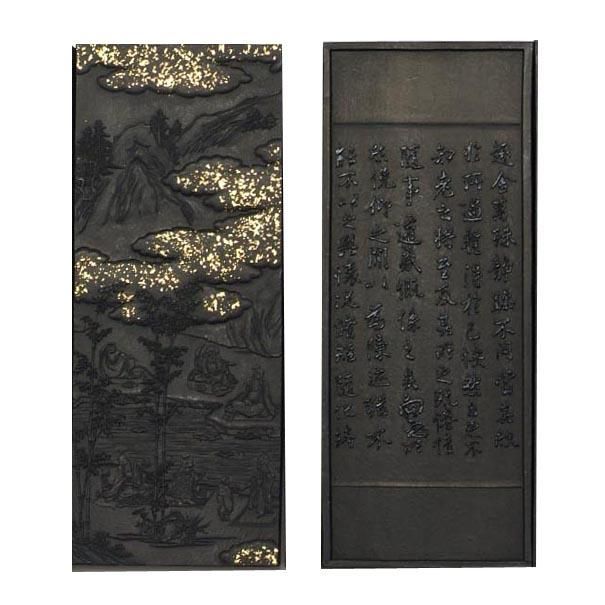 趣舍萬殊靜躁不同當其欣
於所遇暫得於己怏然自足不
知老之將至及其所之既惓情
隨事遷感慨係之矣向之所
欣俛仰之閒以為陳迹猶不
能不以之興懷況脩短隨化終